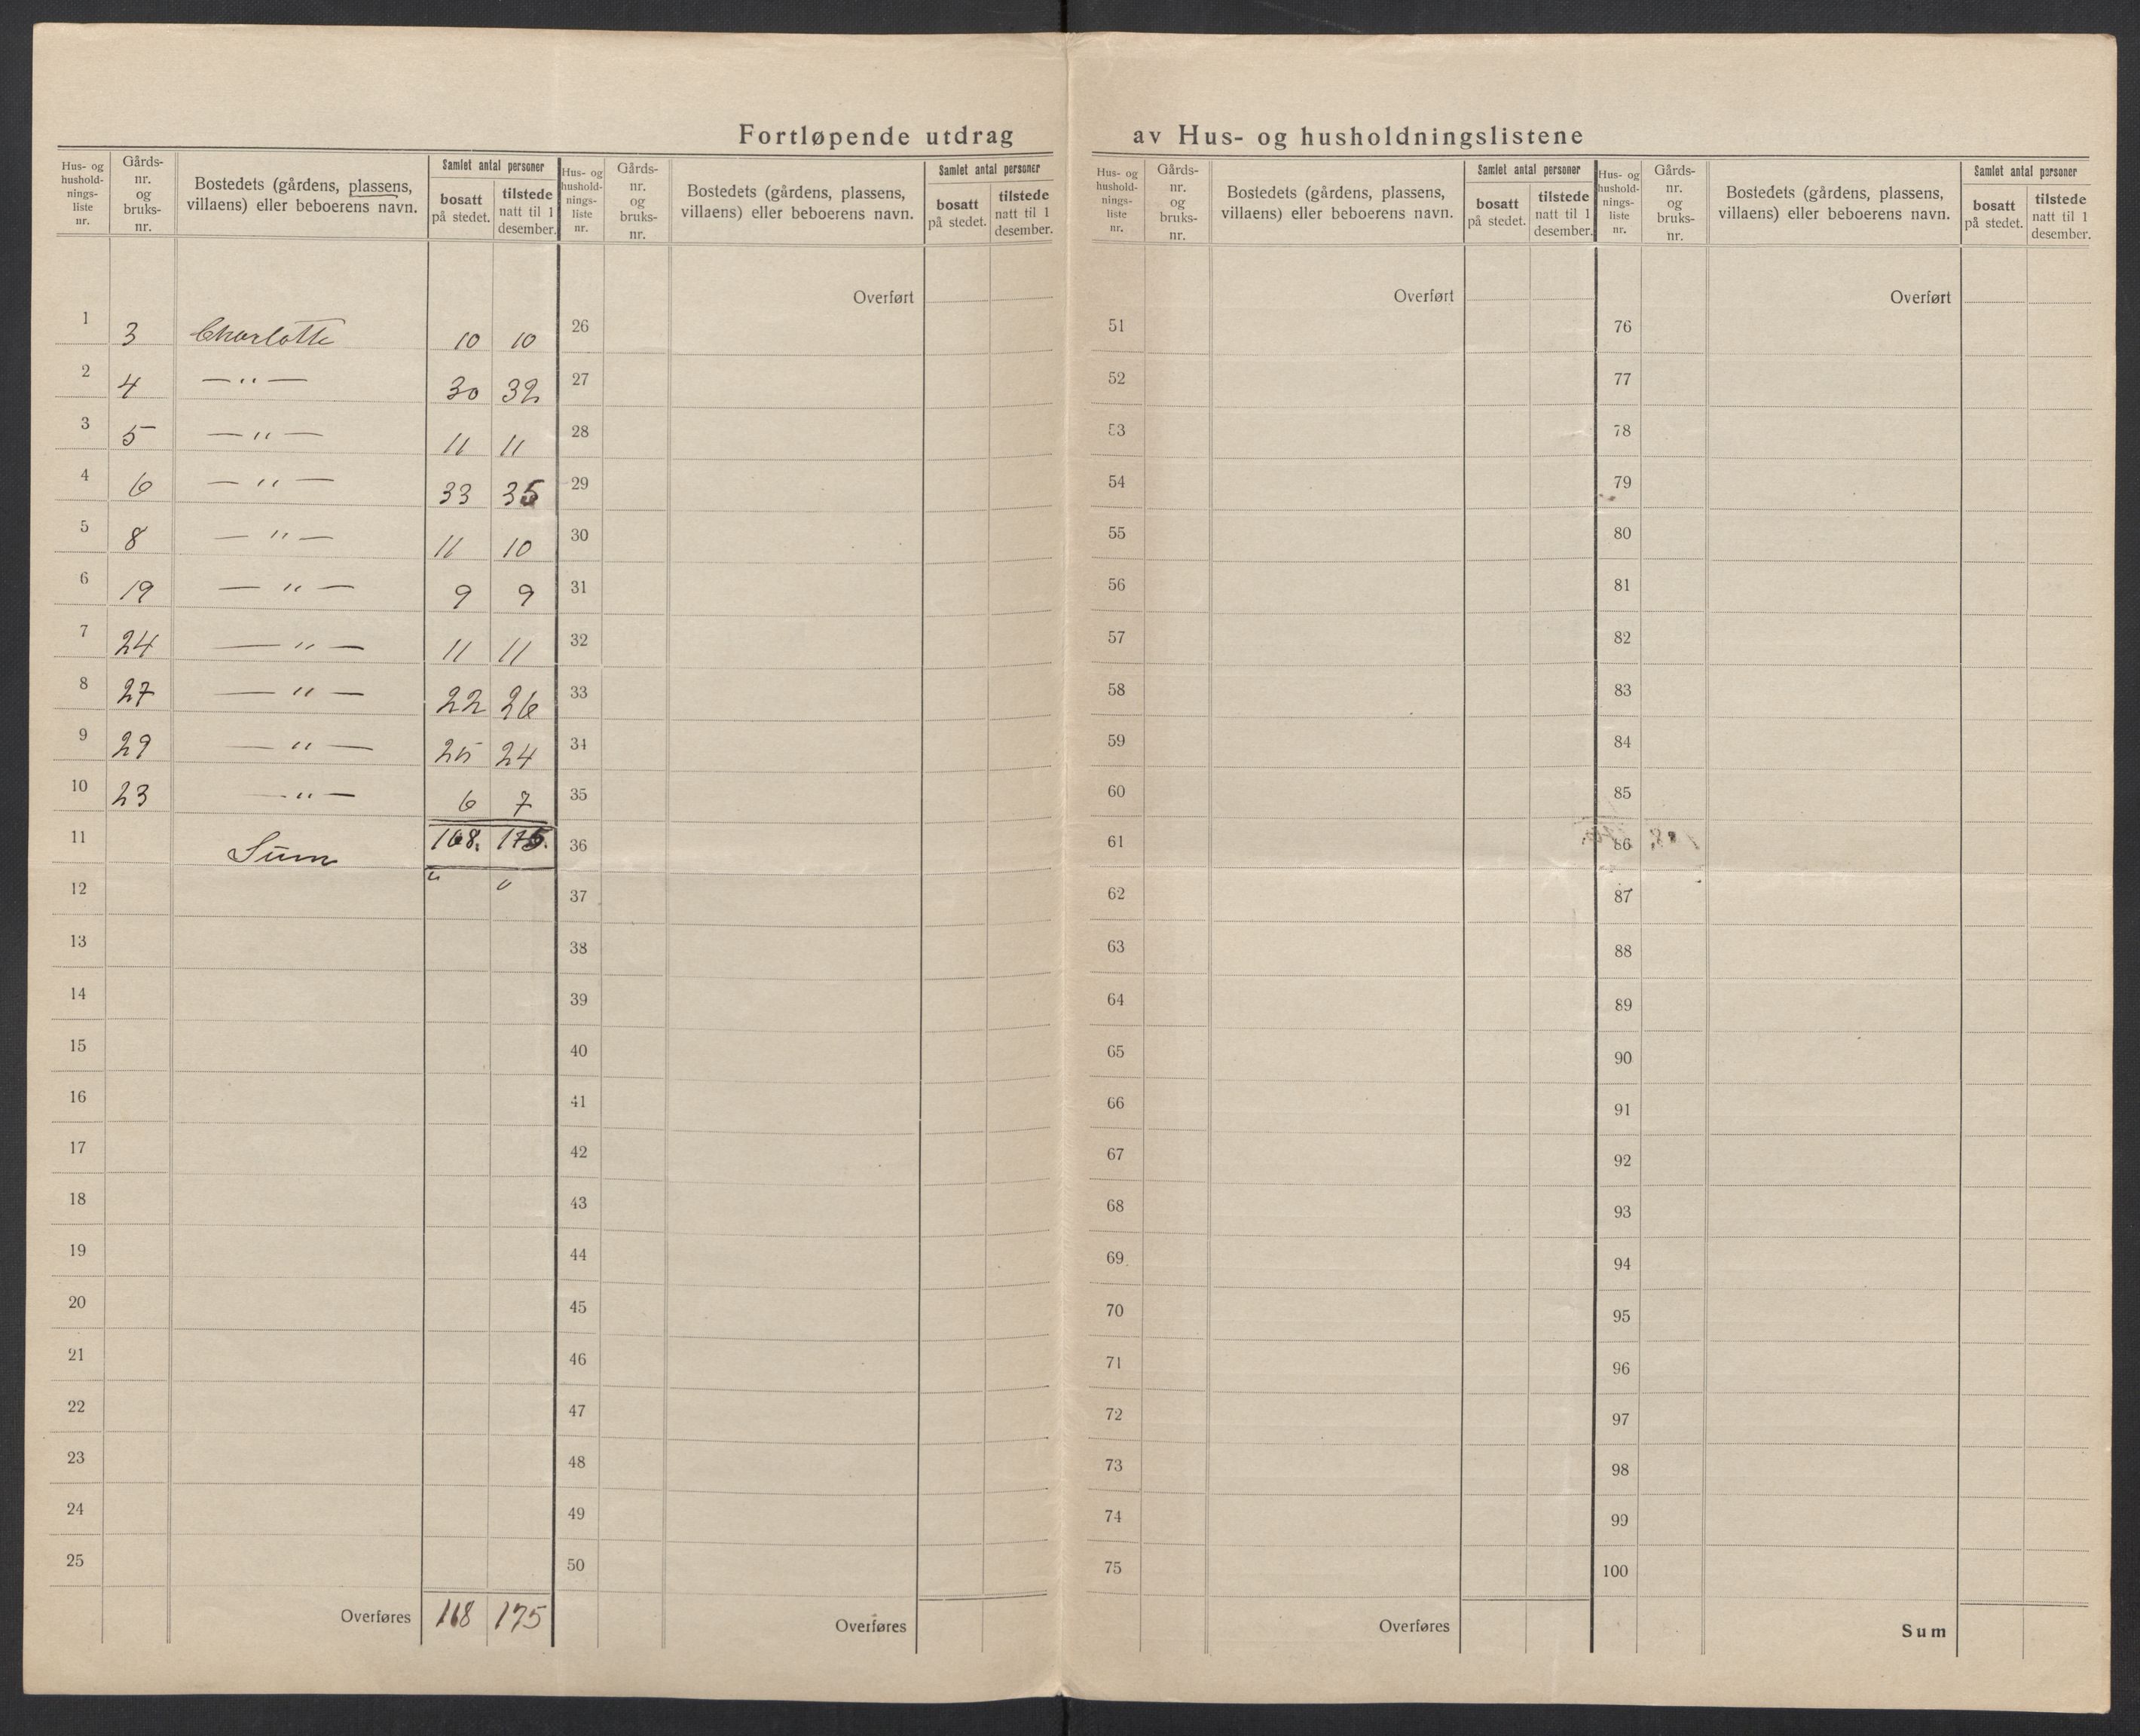 Fortløpende utdrag av Hus- og husholdningslistene
Hus- og hushold- nings- liste nr.
Gårds- nr. og bruks- nr.
Bostedets (gårdens, plassens, villaens) eller beboerens navn.
Samlet antal personer
bosatt på stedet.
tilstede natt til 1 desember.
1 3 Charlotte 10 10
2 4 — " — 30 32
3 5 — " — 11 11
4 6 — " — 33 35
5 8 — " — 11 10
6 19 — " — 9 9
7 24 — " — 11 11
8 27 — " — 22 26
9 29 — " — 25 24
10 23 — " — 6 7
11 Sum 168. 175.
12 " "
13
14
15
16
17
18
19
20
21
22
23
24
25
Overføres 168 175
Hus- og hushold- nings- liste nr.
Gårds- nr. og bruks- nr.
Bostedets (gårdens, plassens, villaens) eller beboerens navn.
Samlet antal personer
bosatt på stedet.
tilstede natt til 1 desember.
Overført
26
27
28
29
30
31
32
33
34
35
36
37
38
39
40
41
42
43
44
45
46
47
48
49
50
Overføres
Hus- og hushold- nings- liste nr.
Gårds- nr. og bruks- nr.
Bostedets (gårdens, plassens, villaens) eller beboerens navn.
Samlet antal personer
bosatt på stedet.
tilstede natt til 1 desember.
Overført
51
52
53
54
55
56
57
58
59
60
61
62
63
64
65
66
67
68
69
70
71
72
73
74
75
Overføres
Hus- og hushold- nings- liste nr.
Gårds- nr. og bruks- nr.
Bostedets (gårdens, plassens, villaens) eller beboerens navn.
Samlet antal personer
bosatt på stedet.
tilstede natt til 1 desember.
Overført
76
77
78
79
80
81
82
83
84
85
86
87
88
89
90
91
92
93
94
95
96
97
98
99
100
Sum